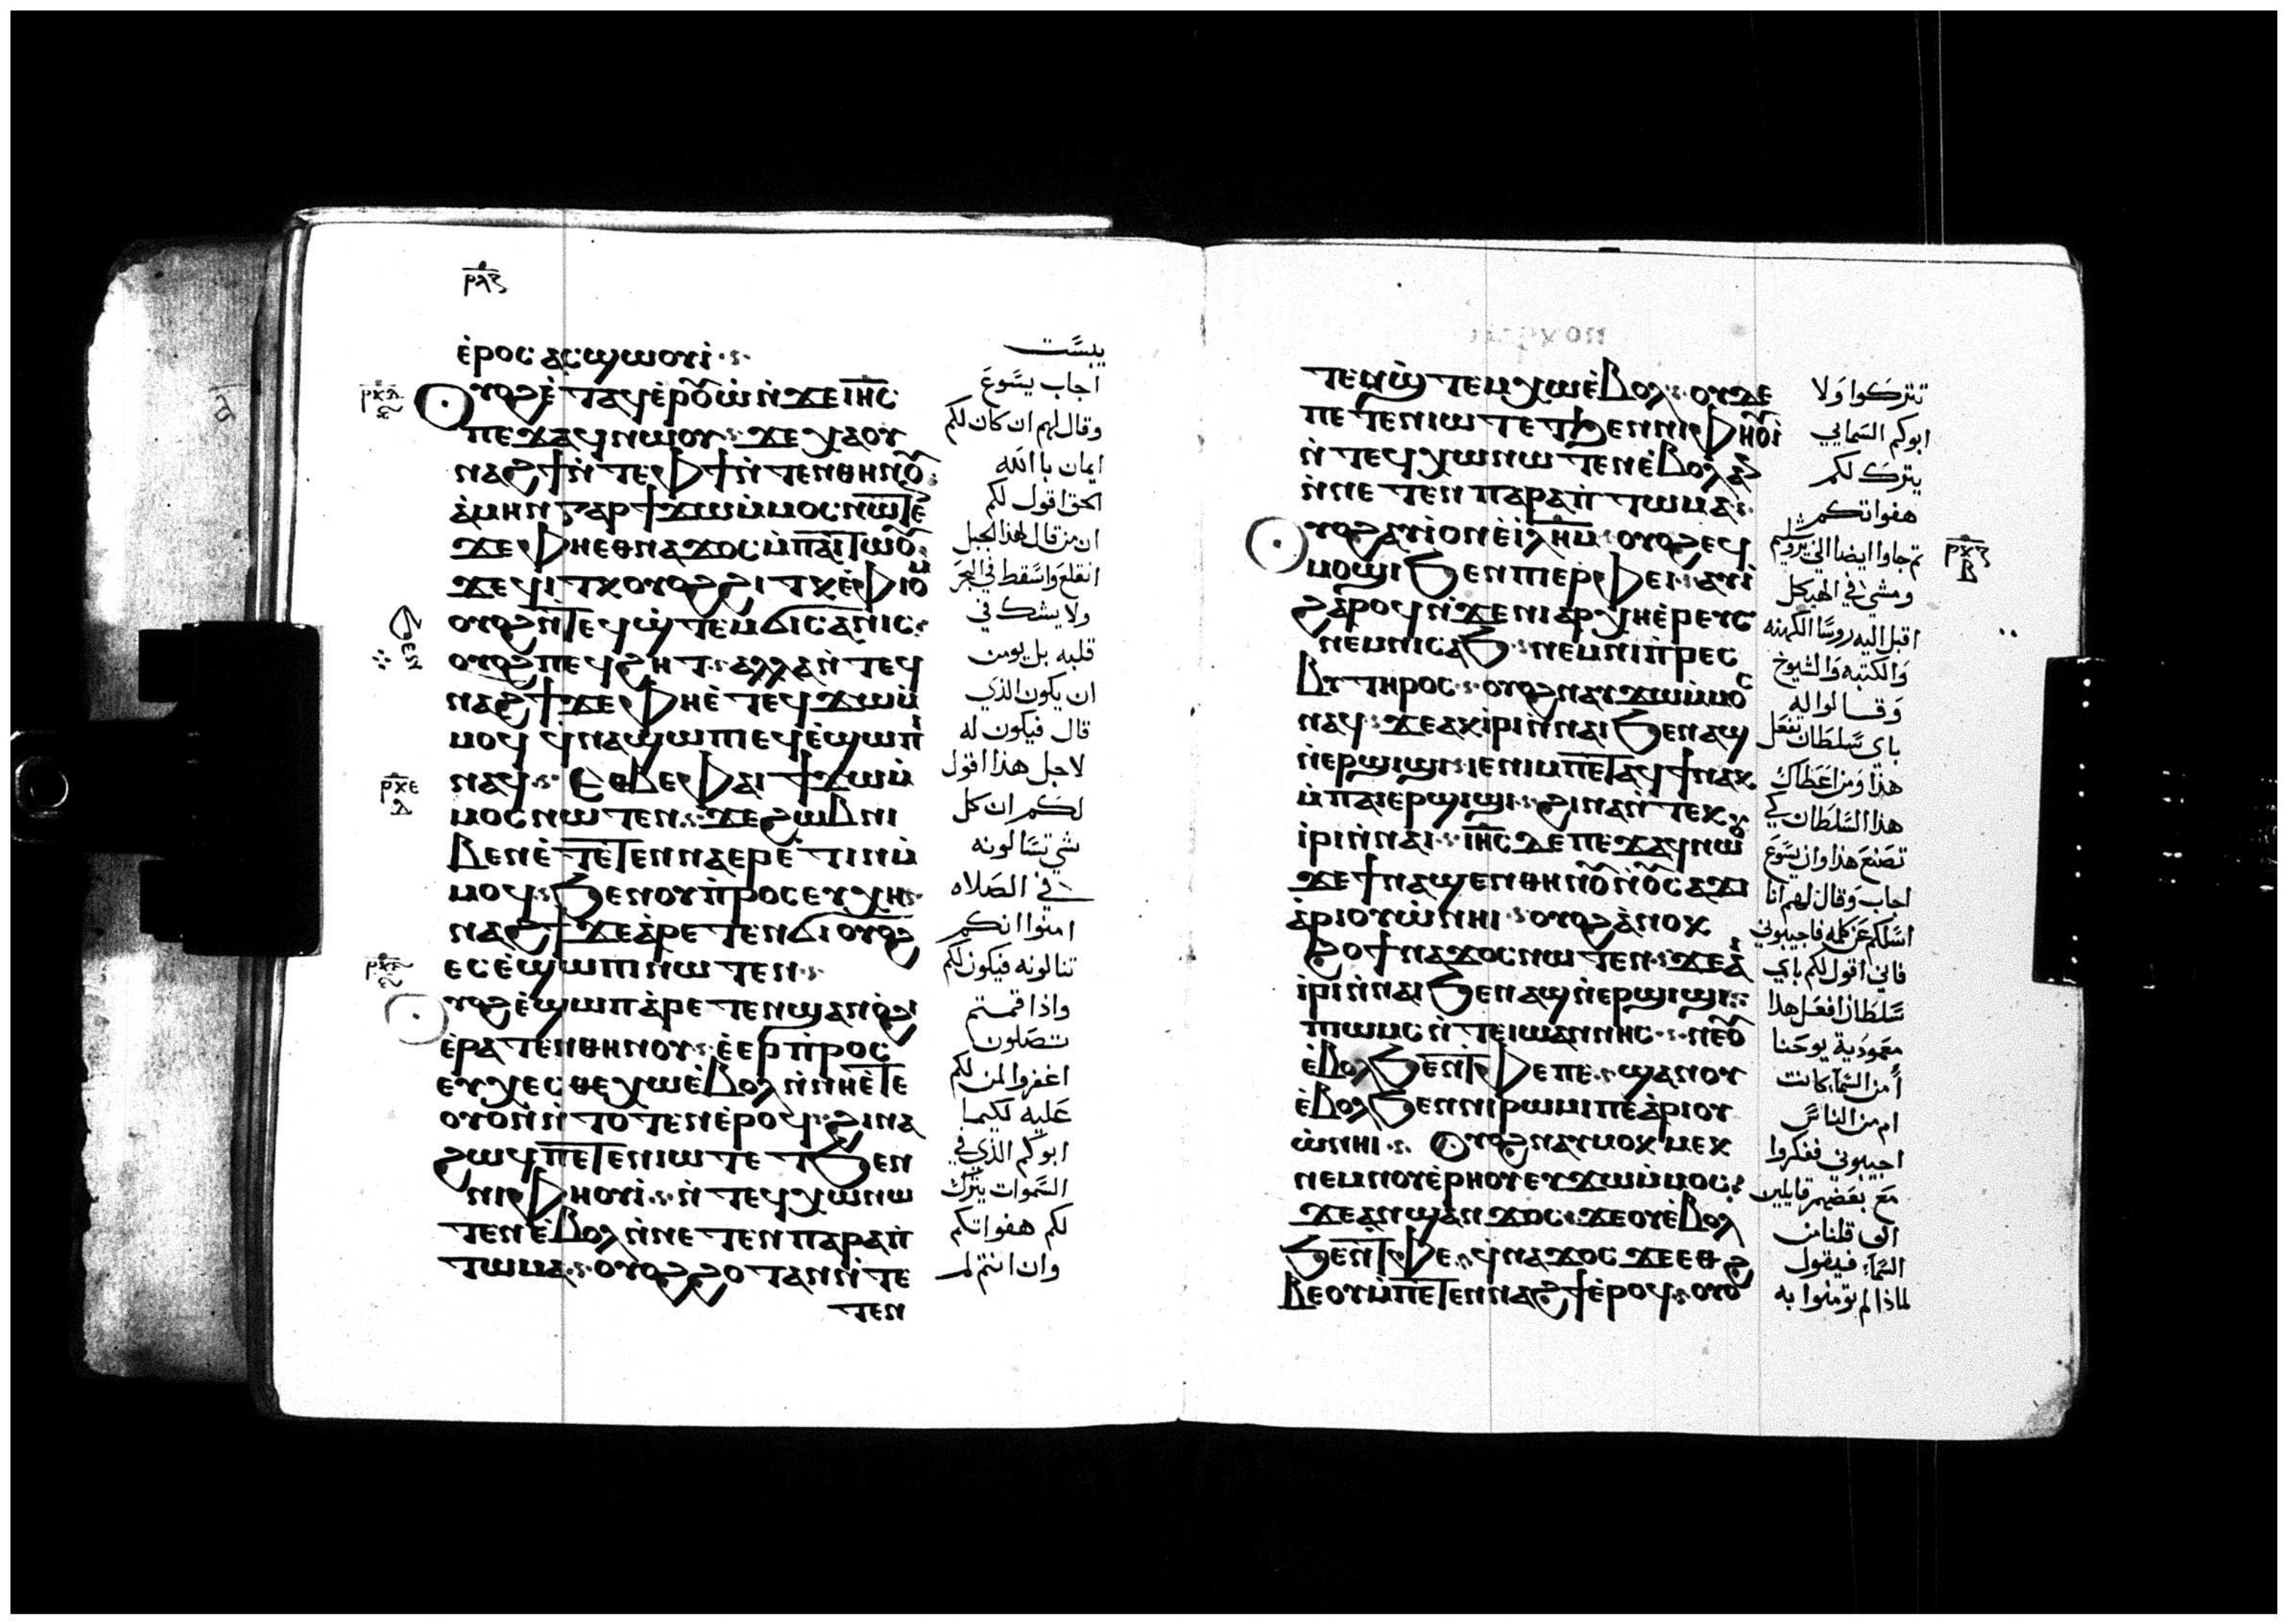 ⲣⲗⲋ
ⲉ̀ⲣⲟⲥ ⲁⲥϣⲱⲟⲩⲓ̀
ⲟⲩⲟϩ ⲉ̀ⲧⲁϥⲉⲣⲟⲩⲱ̀ ⲛ̀ϫⲉ ⲓⲏⲥ
ⲡⲉϫⲁϥ ⲛⲱⲟⲩ ϫⲉ ⲭⲁ ⲟⲩ
ⲛⲁϩϯ ⲛ̀ⲧⲉ ⲫϯ ⲛ̀ⲧⲉⲛⲑⲏⲛⲟⲩ
ⲁ̀ⲙⲏⲛ ⲅⲁⲣ ϯϫⲱ ⲙ̀ⲙⲟⲥ ⲛⲱⲧⲉⲛ
ϫⲉ ⲫⲏ ⲉⲑⲛⲁϫⲟⲥ ⲙ̀ⲡⲁⲓⲧⲱⲟⲩ
ϫⲉ ϥⲓⲧⲕ ⲟⲩⲟϩ ϩⲓⲧⲕ ⲉ̀ⲫⲓⲟⲙ
ⲟⲩⲟϩ ⲛ̀ⲧⲉϥϣ̀ⲧⲉⲙϭⲓⲥⲁⲛⲓⲥ
ⲟⲩⲟϩ ⲡⲉϥϩⲏⲧ ⲁⲗⲗⲁ ⲛ̀ⲧⲉϥ
ⲛⲁϩϯ ϫⲉ ⲫⲏ ⲉ̀ⲧⲉϥϫⲱ ⲙ̀
ⲙⲟϥ ϥⲛⲁϣⲱⲡⲓ ⲉϥⲉ̀ϣⲱⲡⲓ
ⲛⲁϥ ⲉⲑⲃⲉ ⲫⲁⲓ ϯϫⲱ ⲙ̀
ⲙⲟⲥ ⲛⲱⲧⲉⲛ ϫⲉ ϩⲱⲃ ⲛⲓ
ⲃⲉⲛ ⲉ̀ⲧⲉⲧⲉⲛⲛⲁⲉⲣⲉ̀ⲧⲓⲛ ⲙ̀
ⲙⲟϥ ϧⲉⲛ ⲟⲩⲡ̀ⲣⲟⲥⲉⲩⲭⲏ
ⲛⲁϩϯ ϫⲉ ⲁ̀ⲣⲉⲧⲉⲛϭⲓ ⲟⲩⲟϩ
ⲉⲥⲉ̀ϣⲱⲡⲓ ⲛⲱⲧⲉⲛ
ⲟⲩⲟϩ ⲉ̀ϣⲱⲡ ⲁ̀ⲣⲉⲧⲉⲛϣⲁⲛⲟ̀ϩⲓ
ⲉ̀ⲣⲁⲧⲉⲛⲑⲏⲛⲟⲩ ⲉ̀ⲉⲣⲡ̀ⲣⲟⲥ
ⲉⲩⲭⲉⲥⲑⲉ ⲭⲱ ⲉ̀ⲃⲟⲗ ⲛ̀ⲛⲏ ⲉ̀ⲧⲉ
ⲟⲩⲟⲛ ⲛ̀ⲧⲟⲧⲉⲛ ⲉ̀ⲣⲟϥ ϩⲓⲛⲁ
ϩⲱϥ ⲡⲉⲧⲉⲛⲓⲱⲧ ⲉⲧϧⲉⲛ
ⲛⲓⲫⲏⲟⲩⲓ̀ ⲛ̀ⲧⲉϥⲭⲱ ⲛⲱ
ⲧⲉⲛ ⲉ̀ⲃⲟⲗ ⲛ̀ⲛⲉⲧⲉⲛⲡⲁⲣⲁⲡ̀
ⲧⲱⲙⲁ ⲟⲩⲟϩ ϩⲟⲧⲁⲛ ⲛ̀ⲧⲉ
ⲧⲉⲛ
يبست
اجاب يسوع
وقال لهم ان كان لكم
ايمان بالله
الحق اقول لكم
ان من قال لهذا الجبل
انقلع واسقط في البحر
ولا يشك في
قلبه بل يومن
ان يكون الذي
قال فيكون له
لاجل هذا اقول
لكم ان كل
شي تسالونه
في الصلاه
امنوا انكم
تنالونه فيكون لكم
واذا قمتم
تصلون
اغفروا لمن لكم
عليه لكيما
ابوكم الذي في
السموات يترك
لكم هفواتكم
وان انتم لم
ⲧⲉⲛϣ̀ⲧⲉⲙⲭⲱ ⲉ̀ⲃⲟⲗ ⲟⲩⲇⲉ
ⲡⲉⲧⲉⲛⲓⲱⲧ ⲉⲧϧⲉⲛ ⲛⲓⲫⲏⲟⲩⲓ̀
ⲛ̀ⲧⲉϥⲭⲱ ⲛⲱⲧⲉⲛ ⲉ̀ⲃⲟⲗ ⲁⲛ
ⲛ̀ⲛⲉⲧⲉⲛⲡⲁⲣⲁⲡ̀ⲧⲱⲙⲁ
ⲟⲩⲟϩ ⲁⲩⲓ̀ ⲟⲛ ⲉ̀ⲓⲗⲏⲙ ⲟⲩⲟϩ ⲉϥ
ⲙⲟϣⲓ ϧⲉⲛ ⲡⲓⲉⲣⲫⲉⲓ ⲁⲩⲓ̀
ϩⲁⲣⲟϥ ⲛ̀ϫⲉ ⲛⲓⲁⲣⲭⲏⲉ̀ⲣⲉⲩⲥ
ⲛⲉⲙ ⲛⲓⲥⲁϧ ⲛⲉⲙ ⲛⲓⲡ̀ⲣⲉⲥ
ⲃⲩⲧⲏⲣⲟⲥ ⲟⲩⲟϩ ⲛⲁⲩϫⲱ ⲙ̀ⲙⲟⲥ
ⲛⲁϥ ϫⲉ ⲁⲕⲓ̀ⲣⲓ ⲛ̀ⲛⲁⲓ ϧⲉⲛ ⲁϣ
ⲛ̀ⲉⲣϣⲓϣⲓ ⲓⲉ ⲛⲓⲙ ⲡⲉⲧⲁϥϯ ⲛⲁⲕ
ⲙ̀ⲡⲁⲓⲉⲣϣⲓϣⲓ ϩⲓⲛⲁ ⲛ̀ⲧⲉⲕ
ⲓ̀ⲣⲓ ⲛ̀ⲛⲁⲓ ⲓⲏⲥ ⲇⲉ ⲡⲉϫⲁϥ ⲛⲱⲟⲩ
ϫⲉ ϯⲛⲁϣⲉⲛⲑⲏⲛⲟⲩ ⲛ̀ⲟⲩⲥⲁϫⲓ
ⲁ̀ⲣⲓⲟⲩⲱ̀ ⲛⲏⲓ ⲟⲩⲟϩ ⲁ̀ⲛⲟⲕ
ϩⲱ ϯⲛⲁϫⲟⲥ ⲛⲱⲧⲉⲛ ϫⲉ ⲁⲓ
ⲓ̀ⲣⲓ ⲛ̀ⲛⲁⲓ ϧⲉⲛ ⲁϣ ⲛ̀ⲉⲣϣⲓϣⲓ
ⲡⲓⲱⲙⲥ ⲛ̀ⲧⲉ ⲓⲱⲁⲛⲛⲏⲥ ⲛⲉ ⲟⲩ
ⲉ̀ⲃⲟⲗ ϧⲉⲛ ⲧⲫⲉ ⲡⲉ ϣⲁⲛ ⲟⲩ
ⲉ̀ⲃⲟⲗ ϧⲉⲛ ⲛⲓⲣⲱⲙⲓ ⲡⲉ ⲁ̀ⲣⲓⲟⲩ
ⲱ̀ ⲛⲏⲓ ⲟⲩⲟϩ ⲛⲁⲩⲙⲟⲕⲙⲉⲕ
ⲛⲉⲙ ⲛⲟⲩⲉ̀ⲣⲏⲟⲩ ⲉⲩϫⲱ ⲙ̀ⲙⲟⲥ
ϫⲉ ⲁⲛϣⲁⲛϫⲟⲥ ϫⲉ ⲟⲩⲉ̀ⲃⲟⲗ
ϧⲉⲛ ⲧⲫⲉ ϥⲛⲁϫⲟⲥ ϫⲉ ⲉⲑ
ⲃⲉⲟⲩ ⲙ̀ⲡⲉⲧⲉⲛⲛⲁϩϯ ⲉ̀ⲣⲟϥ ⲟⲩⲟϩ
تتركوا ولا
ابوكم السمايي
يترك لكم
هفواتكم
ثم جاوا ايضا الى يروشليم
ومشى في الهيكل
اقبل اليه روسا الكهنه
والكتبه والشيوخ
وقالوا له
باي سلطان تفعل
هذا ومن اعطاك
هذا السلطان كي
تصنع هذا وان يسوع
اجاب وقال لهم انا
اسلكم عن كلمه فاجيبوني
فاني اقول لكم باي
سلطان افعل هذا
معمودية يوحنا
أمن السماء كانت
ام من الناس
اجيبوني ففكروا
مع بعضهم قايلين
ان قلنا من
السماء فيقول
لماذا لم تومنوا به